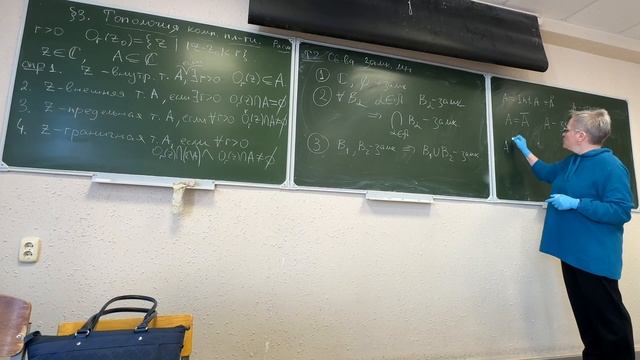 §3. Топология комп. пл-ти.
r>0 O_r(z_0)={z | |z-z_0|<r}
z∈ℂ, A⊂ℂ,
1. z-внутр. т. A, ∃r>0 O_r(z)⊂A
2. z-внешняя т. A, если ∃r>0 O_r(z)∩A=∅
3. z-предельная т. A, если ∀r>0
4. z-граничная т. A, если ∀r>0
замк. мн
① ℂ, ∅-замк
② ∀B_α α∈𝔄 B_α-замк
⇒ ⋂ B_α-замк
α∈𝔄
③ B_1, B_2-замк ⇒ B_1∪B_2-замк
A=Int A
A=Ā